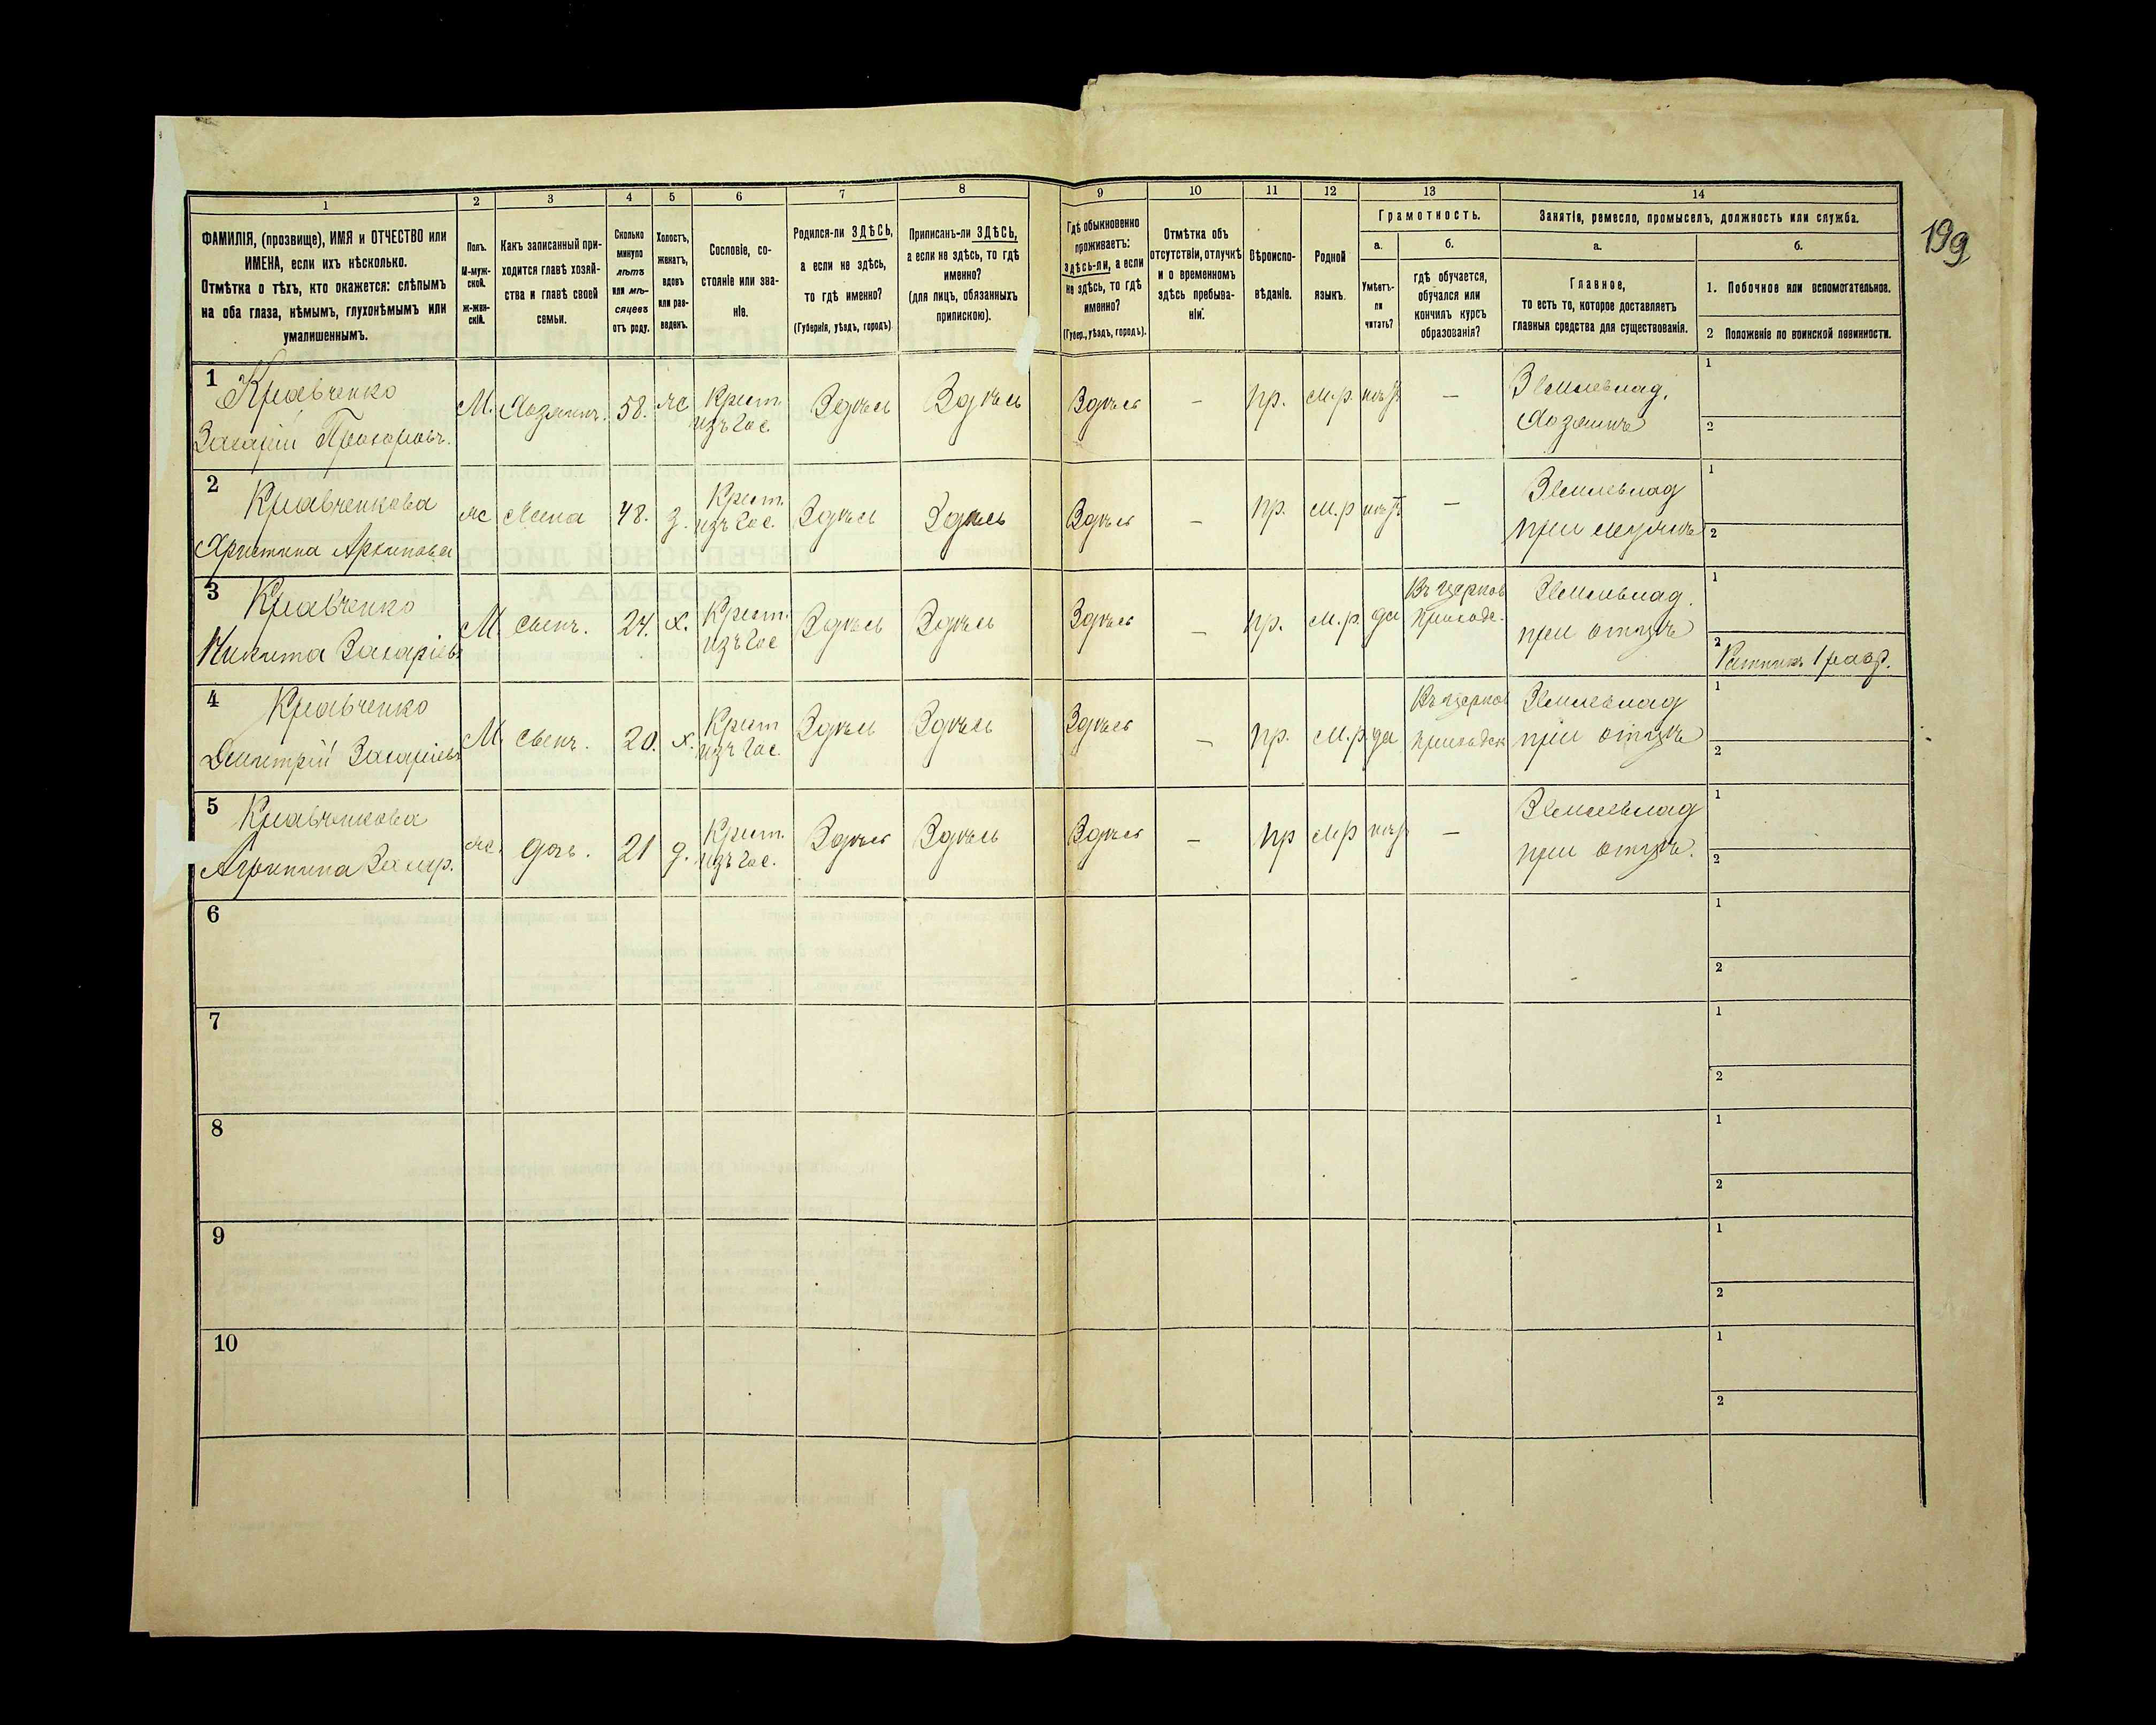 199
1
2
3
4
5
6
7
8
9
10
11
12
13
14
ФАМИЛІЯ, (прозвище), ИМЯ и ОТЧЕСТВО или
ИМЕНА, если ихъ нѣсколько.
Отмѣтка о тѣхъ, кто окажется: слѣпымъ
на оба глаза, нѣмымъ, глухонѣмымъ или
умалишеннымъ.
Полъ.
М-муж-
ской.
ж-жен-
скій.
Какъ записанный при-
ходится главѣ хозяй-
ства и главѣ своей
семьи.
Сколько
минуло
лѣтъ
или мѣ-
сяцевъ
отъ роду.
Холостъ,
женатъ,
вдовъ
или раз-
веденъ.
Сословіе, со-
стояніе или зва-
ніе.
Родился-ли ЗДѢСЬ,
а если не здѣсь,
то гдѣ именно?
(Губернія, уѣздъ, городъ)
Приписанъ-ли ЗДѢСЬ,
а если не здѣсь, то гдѣ
именно?
(для лицъ, обязанныхъ
припискою).
Гдѣ обыкновенно
проживаетъ:
здѣсь-ли, а если
не здѣсь, то гдѣ
именно?
(Губер., уѣздъ, городъ).
Отмѣтка объ
отсутствіи, отлучкѣ
и о временномъ
здѣсь пребыва-
ніи.
Вѣроиспо-
вѣданіе.
Родной
языкъ.
Грамотность.
а.
Умѣетъ-
ли
читать?
б.
гдѣ обучается,
обучался или
кончилъ курсъ
образованія?
Занятіе, ремесло, промыселъ, должность или служба.
а.
Главное,
то есть то, которое доставляетъ
главныя средства для существованія.
б.
1. Побочное или вспомогательное.
2 Положеніе по воинской повинности.
1 Кравченко
Захарій Прохоровъ.
М. Хозяинъ. 58. ж Крест.
изъ гос.
Здѣсь Здѣсь Здѣсь — пр. м.р. нѣтъ —
Землевлад.
Хозяинъ
1
2
2 Кравченкова
Христина Архипова
ж Жена 48. з. Крест.
изъ гос.
Здѣсь Здѣсь Здѣсь — пр. м.р нѣтъ —
Землевлад
при мужѣ
1
2
3 Кравченко
Никита Захаріевъ
М. сынъ. 24. х. Крест.
изъ гос
Здѣсь Здѣсь Здѣсь — пр. м.р. да Въ церков
приходс.
Землевлад.
при отцѣ
1
2 Ратникъ 1 разр.
4 Кравченко
Дмитрій Захаріевъ
М. сынъ. 20. х. Крест
изъ гос.
Здѣсь Здѣсь Здѣсь — пр. м.р. да Въ церков
приходск
Землевлад
при отцѣ
1
2
5 Кравченкова
Агрипина Захар.
ж. дочь. 21 д. Крест.
изъ гос.
Здѣсь Здѣсь Здѣсь — пр м.р нѣтъ —
Землевлад
при отцѣ.
1
2
6
1
2
7
1
2
8
1
2
9
1
2
10
1
2